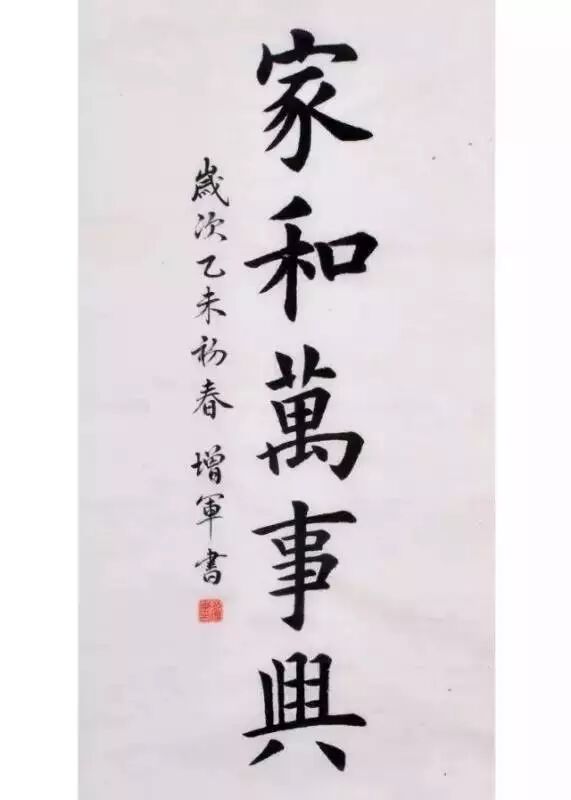 家和萬事興
歲次乙未初春 增軍書